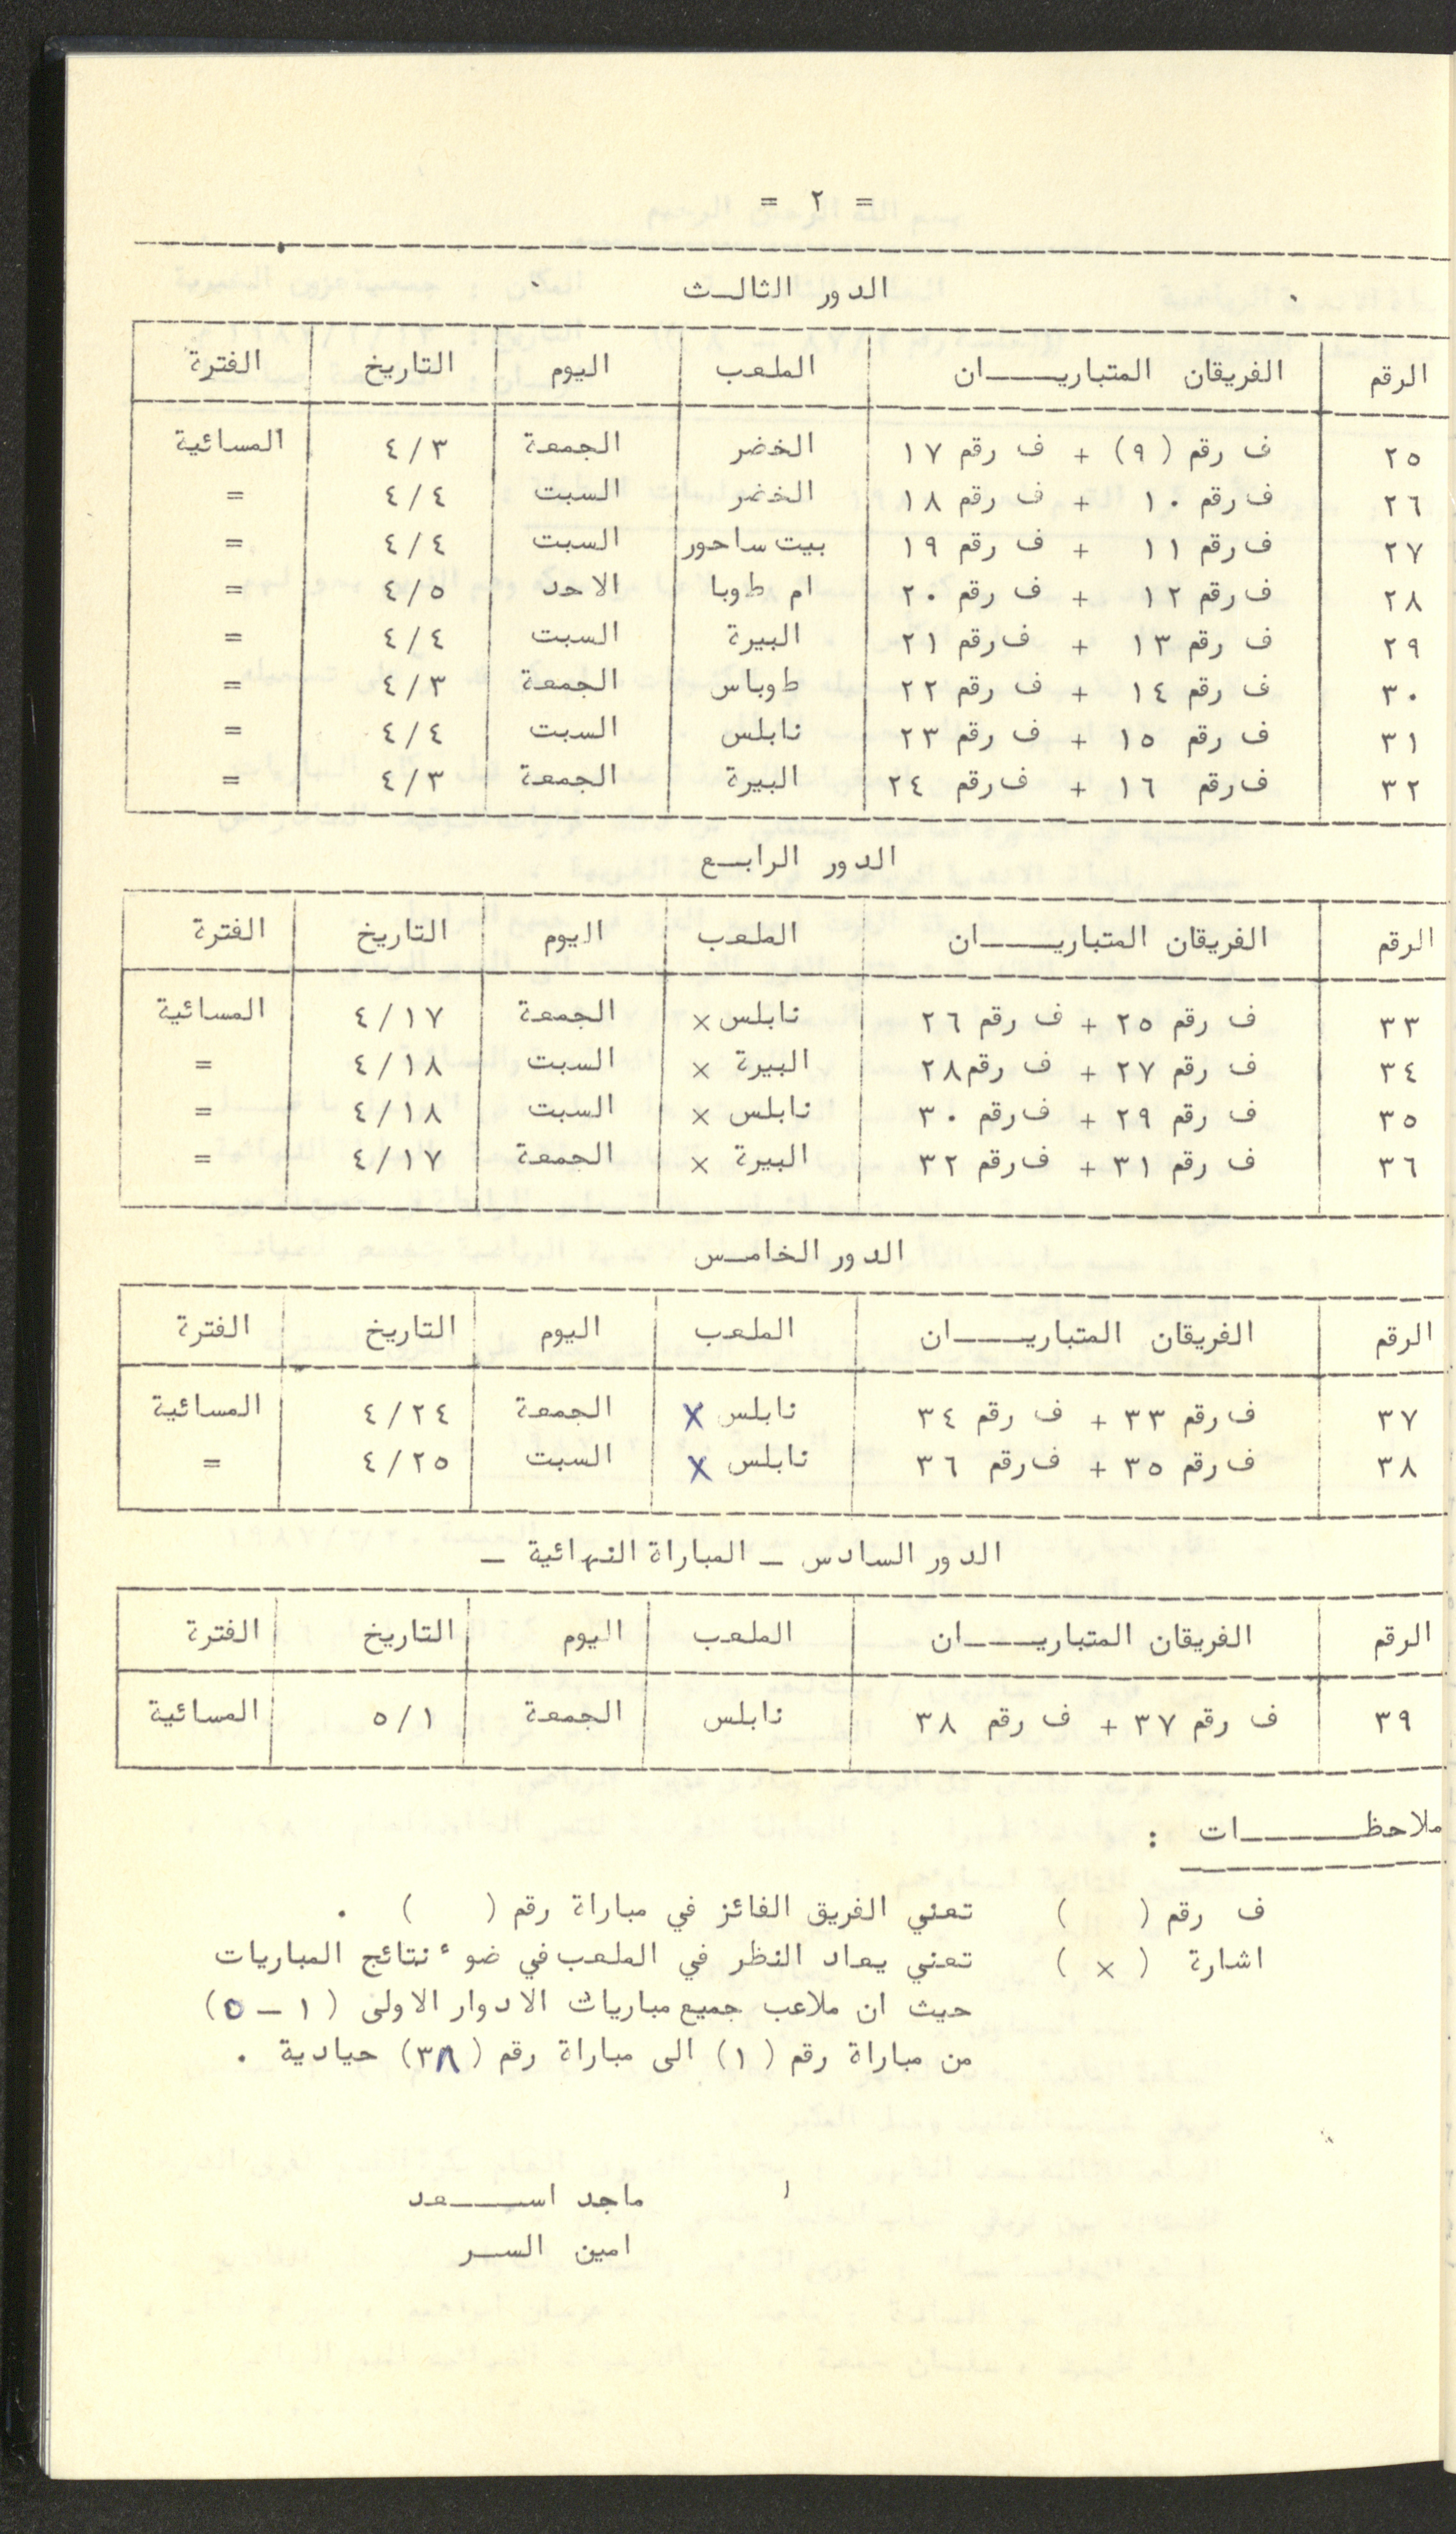 = ٢ =
الدور الثالـث
الرقم الفريقان المتباريــــان الملعب اليوم التاريخ الفترة
٢٥ ف رقم (٩) + ف رقم ١٧ الخضر الجمعة ٤/٣ المسائية
٢٦ ف رقم ١٠ + ف رقم ١٨ الخضر السبت ٤/٤ =
٢٧ ف رقم ١١ + ف رقم ١٩ بيت ساحور السبت ٤/٤ =
٢٨ ف رقم ١٢ + ف رقم ٢٠ ام طوبا الاحد ٤/٥ =
٢٩ ف رقم ١٣ + ف رقم ٢١ البيرة السبت ٤/٤ =
٣٠ ف رقم ١٤ + ف رقم ٢٢ طوباس الجمعة ٤/٣ =
٣١ ف رقم ١٥ + ف رقم ٢٣ نابلس السبت ٤/٤ =
٣٢ ف رقم ١٦ + ف رقم ٢٤ البيرة الجمعة ٤/٣ =
الدور الرابـع
الرقم الفريقان المتباريــــان الملعب اليوم التاريخ الفترة
٣٣ ف رقم ٢٥ + ف رقم ٢٦ نابلس × الجمعة ٤/١٧ المسائية
٣٤ ف رقم ٢٧ + ف رقم ٢٨ البيرة × السبت ٤/١٨ =
٣٥ ف رقم ٢٩ + ف رقم ٣٠ نابلس × السبت ٤/١٨ =
٣٦ ف رقم ٣١ + ف رقم ٣٢ البيرة × الجمعة ٤/١٧ =
الدور الخامـس
الرقم الفريقان المتباريــــان الملعب اليوم التاريخ الفترة
٣٧ ف رقم ٣٣ + ف رقم ٣٤ نابلس × الجمعة ٤/٢٤ المسائية
٣٨ ف رقم ٣٥ + ف رقم ٣٦ نابلس × السبت ٤/٢٥ =
الدور السادس ـ المباراة النهائية ـ
الرقم الفريقان المتباريــــان الملعب اليوم التاريخ الفترة
٣٩ ف رقم ٣٧ + ف رقم ٣٨ نابلس الجمعة ٥/١ المسائية
ملاحظـــــات :
ف رقم ( ) تعني الفريق الفائز في مباراة رقم ( ) .
اشارة ( × ) تعني يعاد النظر في الملعب في ضوء نتائج المباريات
حيث ان ملاعب جميع مباريات الادوار الاولى (١ – ٥)
من مباراة رقم (١) الى مباراة رقم (٣٨) حيادية .
ماجد اســـعد
امين السـر